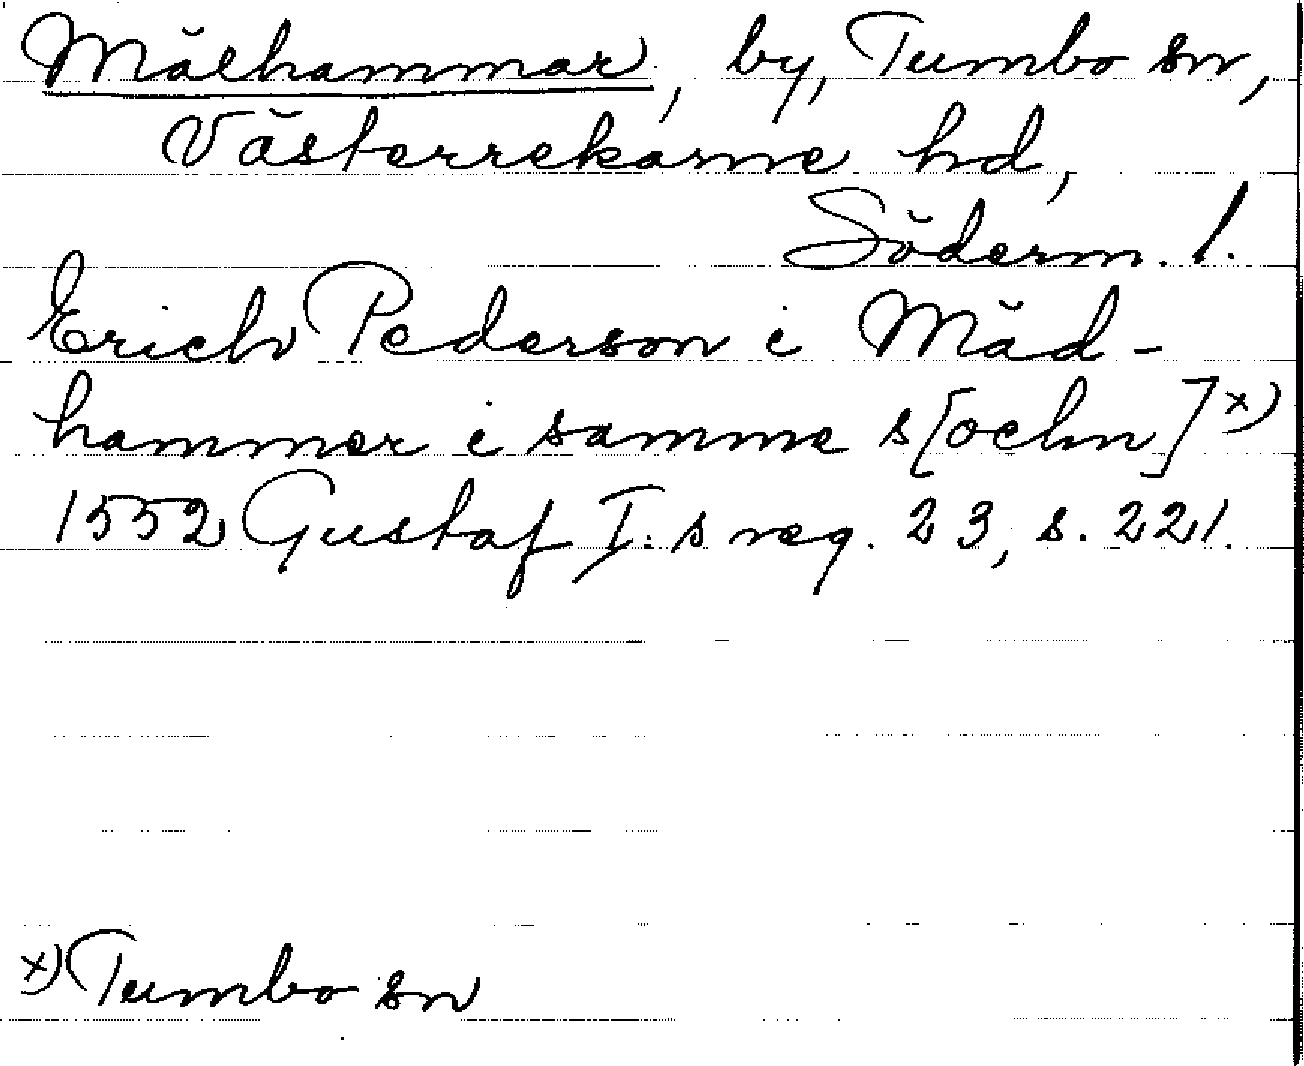 Mälhammar, by, Tumbo sn,
Västerrekarne hd,
Söderm. l.
Erich Pederson i Mäd-
hammer i samme s[ochn] x)
1552 Gustaf I:s reg. 23, s. 221.
x) Tumbo sn